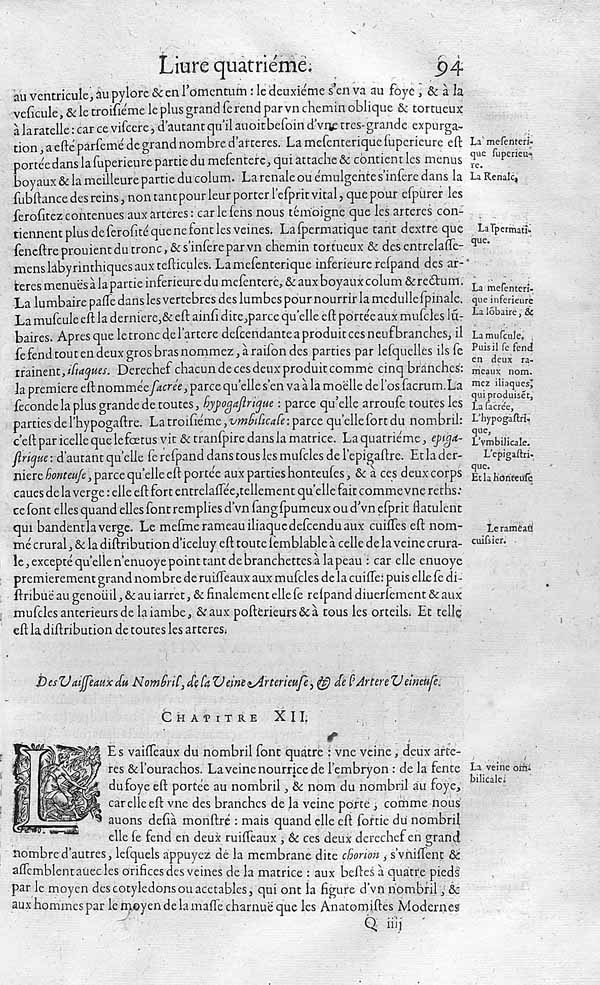 Liure quatriéme. 94
au ventricule, au pylore & en l'omentum : le deuxiéme s'en va au foye, & à la
vesicule, & le troisiéme le plus grand se rend par vn chemin oblique & tortueux
à la ratelle : car ce viscere, d'autant qu'il auoit besoin d'vne tres-grande expurga-
tion, a esté parsemé de grand nombre d'arteres. La mesenterique superieure est
portée dans la superieure partie du mesentere, qui attache & contient les menus
boyaux & la meilleure partie du colum. La renale ou émulgente s'insere dans la
substance des reins, non tant pour leur porter l'esprit vital, que pour espurer les
serositez contenues aux arteres : car le sens nous témoigne que les arteres con-
tiennent plus de serosité que ne font les veines. La spermatique tant dextre que
senestre prouient du tronc, & s'insere par vn chemin tortueux & des entrelasse-
mens labyrinthiques aux testicules. La mesenterique inferieure respand des ar-
teres menuës à la partie inferieure du mesentere, & aux boyaux colum & rectum.
La lumbaire passe dans les vertebres des lumbes pour nourrir la medulle spinale.
La muscule est la derniere, & est ainsi dite, parce qu'elle est portée aux muscles lū-
baires. Apres que le tronc de l'artere descendante a produit ces neuf branches, il
se fend tout en deux gros bras nommez, à raison des parties par lesquelles ils se
trainent, iliaques. Derechef chacun de ces deux produit comme cinq branches:
la premiere est nommée sacrée, parce qu'elle s'en va à la moëlle de l'os sacrum. La
seconde la plus grande de toutes, hypogastrique : parce qu'elle arrouse toutes les
parties de l'hypogastre. La troisiéme, vmbilicale : parce qu'elle sort du nombril:
c'est par icelle que le fœtus vit & transpire dans la matrice. La quatriéme, epiga-
strique : d'autant qu'elle se respand dans tous les muscles de l'epigastre. Et la der-
niere honteuse, parce qu'elle est portée aux parties honteuses, & à ces deux corps
caues de la verge : elle est fort entrelassée, tellement qu'elle fait comme vne reths:
ce sont elles quand elles sont remplies d'vn sang spumeux ou d'vn esprit flatulent
qui bandent la verge. Le mesme rameau iliaque descendu aux cuisses est nom-
mé crural, & la distribution d'iceluy est toute semblable à celle de la veine crura-
le, excepté qu'elle n'enuoye point tant de branchettes à la peau : car elle enuoye
premierement grand nombre de ruisseaux aux muscles de la cuisse: puis elle se di-
stribuë au genoüil, & au iarret, & finalement elle se respand diuersement & aux
muscles anterieurs de la iambe, & aux posterieurs & à tous les orteils. Et telle
est la distribution de toutes les arteres.
La mesenteri-
que superieu-
re.
La Renale,
La spermati-
que.
La mesenteri-
que inferieure
La lōbaire, &
La muscule,
Puis il se fend
en deux ra-
meaux nom-
mez iliaques,
qui produisēt,
La sacrée,
L'hypogastri-
que,
L'vmbilicale.
L'epigastri-
que.
Et la honteuse
Le rameau
cuissier.
Des Vaisseaux du Nombril, de la Veine Arterieuse, & de l'Artere Veineuse.
CHAPITRE XII.
LEs vaisseaux du nombril sont quatre : vne veine, deux arte-
res & l'ourachos. La veine nourrice de l'embryon : de la fente
du foye est portée au nombril, & nom du nombril au foye,
car elle est vne des branches de la veine porte, comme nous
auons desià monstré : mais quand elle est sortie du nombril
elle se fend en deux ruisseaux, & ces deux derechef en grand
nombre d'autres, lesquels appuyez de la membrane dite chorion, s'vnissent &
assemblent auec les orifices des veines de la matrice : aux bestes à quatre pieds
par le moyen des cotyledons ou acetables, qui ont la figure d'vn nombril, &
aux hommes par le moyen de la masse charnuë que les Anatomistes Modernes
La veine om-
bilicale.
Q iiij